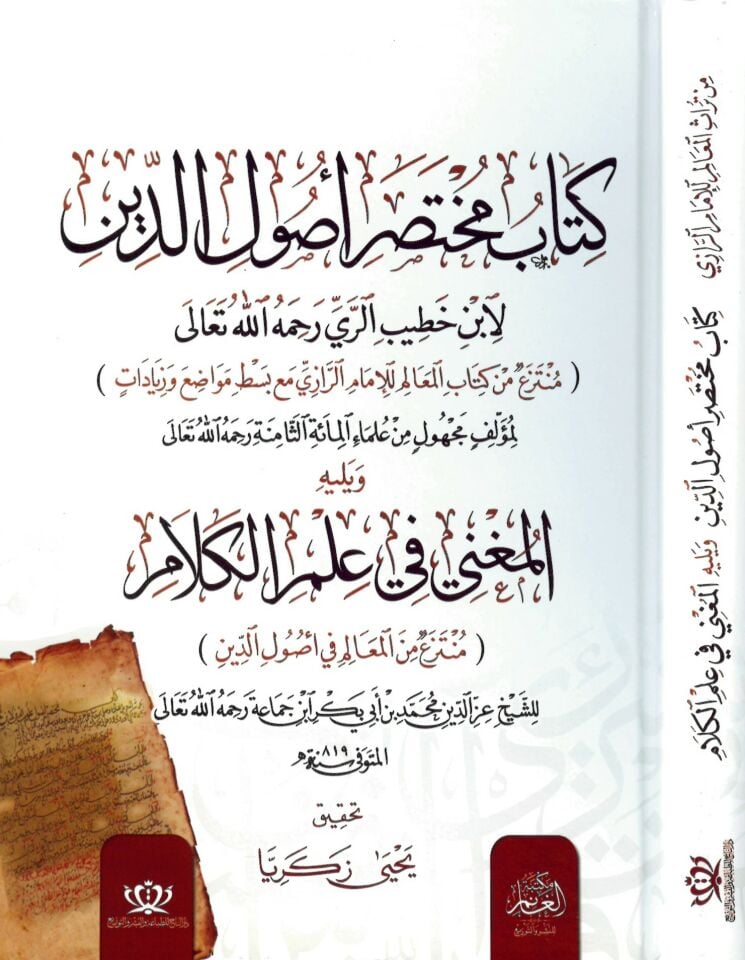 كِتَابُ مُخْتَصَرِ أُصُولِ الدِّينِ
لِابْنِ خَطِيبِ الرَّيِّ رَحِمَهُ اللهُ تَعَالَى
( مُنْتَزَعٌ مِنْ كِتَابِ المَعَالِمِ لِلإِمَامِ الرَّازِيِّ مَعَ بَسْطِ مَوَاضِعَ وَزِيَادَاتٍ )
لِمُؤَلِّفٍ مَجْهُولٍ مِنْ عُلَمَاءِ المِائَةِ الثَّامِنَةِ رَحِمَهُ اللهُ تَعَالَى
وَيَلِيهِ
المُغْنِي فِي عِلْمِ الكَلَامِ
( مُنْتَزَعٌ مِنَ المَعَالِمِ فِي أُصُولِ الدِّينِ )
لِلشَّيْخِ عِزِّ الدِّينِ مُحَمَّدِ بْنِ أَبِي بَكْرِ ابْنِ جَمَاعَة رَحِمَهُ اللهُ تَعَالَى
المتوفى سنة ٨١٩هـ
تحقيق
يَحْيَى زَكَرِيَّا
دار التاج للطباعة والنشر والتوزيع
مكتبة
الغانم
للنشر والتوزيع
مِنْ تُرَاثِ المَعَالِمِ لِلإِمَامِ الرَّازِي
كِتَابُ مُخْتَصَرِ أُصُولِ الدِّينِ وَيَلِيهِ المُغْنِي فِي عِلْمِ الكَلَامِ